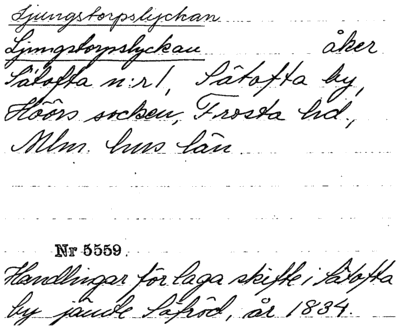 Ljungstorpslyckan
Ljungstorpslyckan åker
Sätofta n:r 1, Sätofta by,
Höörs socken, Frosta hd,
Mlm. hus län.
Nr 5559.
Handlingar för laga skifte i Sätofta
by jämte Såröd, år 1834.